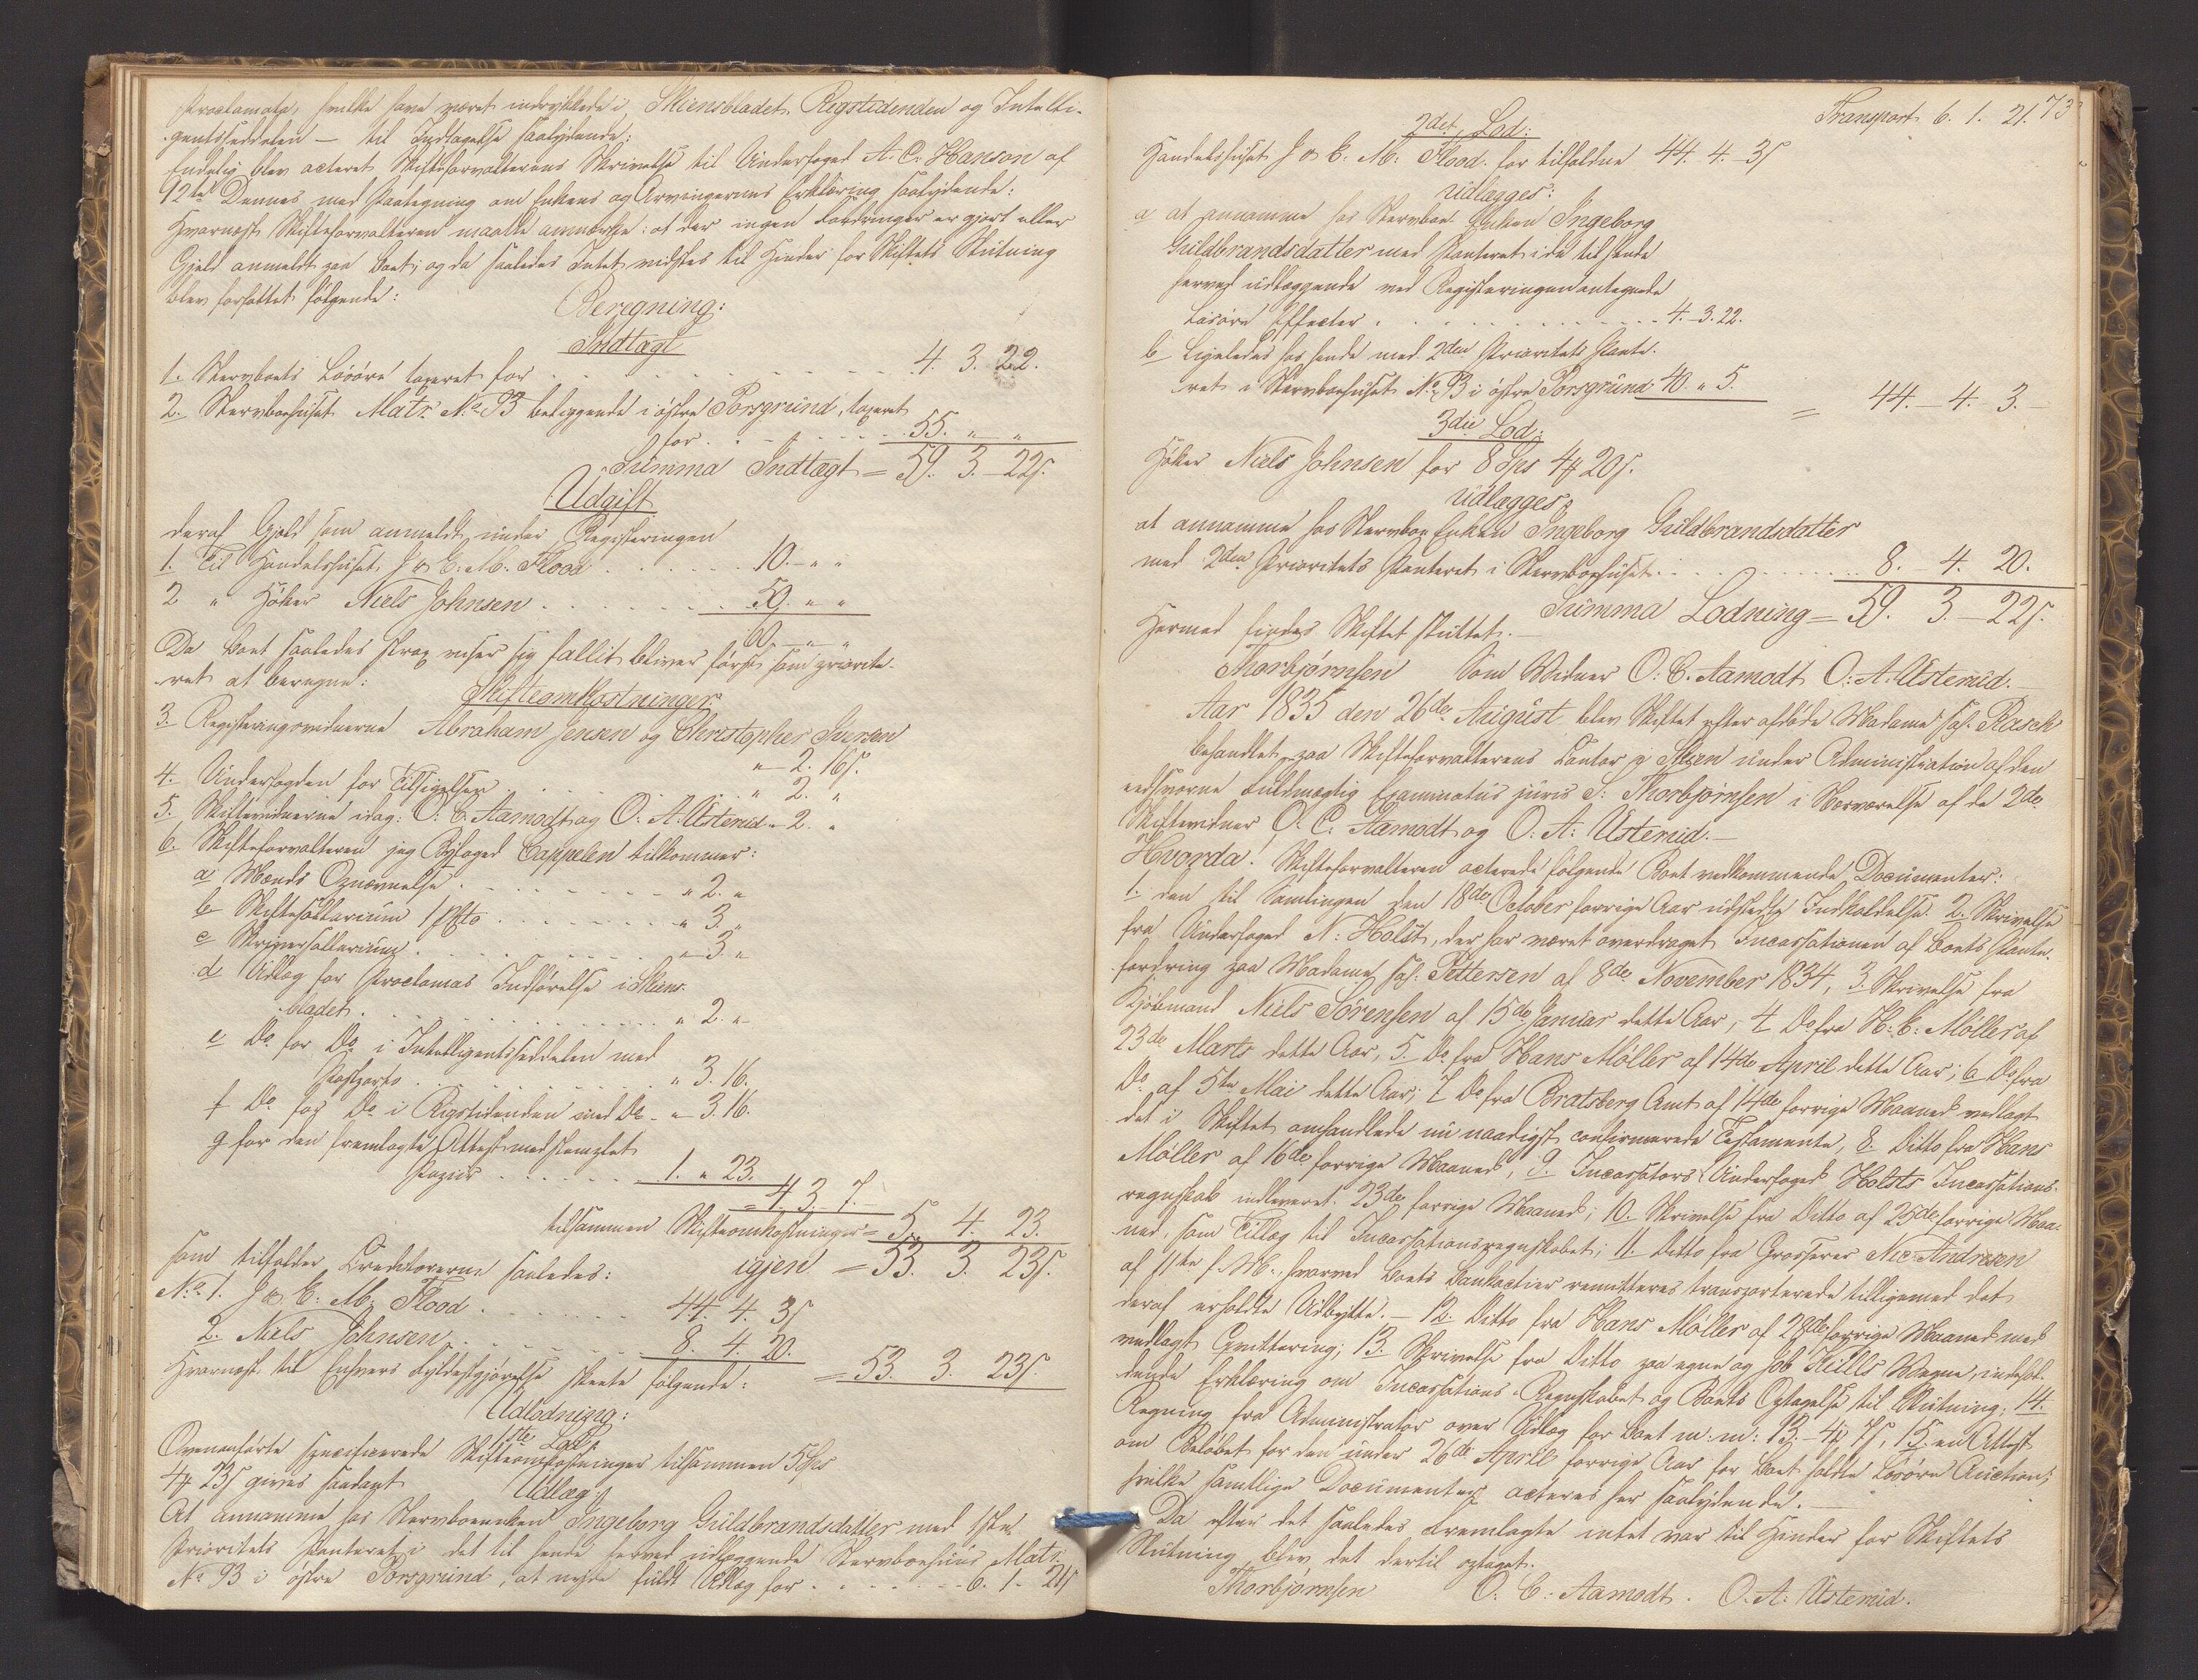 Proclamata, hvilke have været indrykkede i Skiensbladet, Rigstidenden og Intelli-
gentssedelen – til Indtagelse saalydende:
Endelig blev acteret Skifteforvalterens Skrivelse til Underfoged A. C. Hanson af
12te Dennes med Paategning om Enkens og Arvingernes Erklæring saalydende:
Hvornæst Skifteforvalteren maatte anmærke: at der ingen Fordringer er gjort eller
Gjeld anmeldt paa Boet; og da saaledes Intet vidstes til Hinder for Skiftets Slutning
blev forfattet følgende:
Beregning:
Indtægt
1. Stervboets Løsøre taxeret for . . . 4. 3. 22.
2. Stervboehuset Matr. No 93 beliggende i østre Porsgrund, taxeret
for . . . 55. " "
Summa Indtægt = 59. 3. – 22 s.
Udgift
deraf Gjeld som anmeldt under Registeringen
1. Til Handelshuset J & C. M. Flood . . . 10. – " "
2 " Høker Niels Johnsen . . . 50. " "
60. – " "
Da Boet saaledes strax viser sig fallit bliver først som priorite-
ret at beregne:
Skifteomkostninger:
3. Registeringsvidnerne Abraham Jensen og Christopher Iversen
" – 2. 16 s.
4. Underfogden for Tilsigelsen . . . " 2. "
5. Skiftevidnerne idag: O. C. Aamodt og O. A. Usterud – 2. "
6. Skifteforvalteren jeg Byfoged Cappelen tilkommer:
a Mænds Opnævnelse . . . " 2. "
b Skiftesallarium 1 pCto . . . " 3. "
c Skriversallarium . . . " 3. "
d Udlæg for Proclamas Indførelse i Skiens-
bladet . . . " 2. "
e Do for Do i Intelligentssedelen med
Postporto . . . " 3. 16.
f Do for Do i Rigstidenden med Do – " 3. 16.
g for den fremlagte Attest med stemplet
Papiir . . . 1. " 23.
= 4. 3. 7.
tilsammen Skifteomkostninger = 5. 4. 23.
igjen = 53. 3. 23 s.
som tilfalder Creditorerne saaledes:
No 1. J & C. M. Flood . . . 44. 4. 3 s
2. Niels Johnsen . . . 8. 4. 20.
= 53. 3. 23 s.
Hvornæst til Enhvers Fyldestgjørelse skeete følgende:
Udlodning:
1ste Lod:
Ovenanførte specificerede Skifteomkostninger tilsammen 5 Sps
4 # 23 s gives saadant
Udlæg:
At annamme hos Stervboenken Ingeborg Guldbrandsdatter med 1ste
Prioritets Panteret i det til hende herved udlæggende Stervboehuus Matr.
No 93 i østre Porsgrund, at nyde fuldt Udlæg for . . . 6. 1. 21 s
Transport 6. 1. 21. 73
2det Lod:
Handelshuset J & C. M. Flood for tilfaldne 44. 4. – 3 s
udlægges:
a at annamme hos Stervboe Enken Ingeborg
Guldbrandsdatter med Panteret i de til hende
herved udlæggende ved Registeringen antegnede
Løsøre Effecter . . . 4. – 3. 22.
b Ligeledes hos hende med 2den Prioritets Pante-
ret i Stervboehuset No 93 i østre Porsgrund 40. " 5.
= 44. – 4. – 3. –
3die Lod:
Høker Niels Johnsen for 8 Sps 4 # 20 s.
udlægges:
at annamme hos Stervboe Enken Ingeborg Guldbrandsdatter
med 2den Prioritets Panteret i Stervboehuset . . . 8. – 4. 20.
Summa Lodning = 59. 3. – 22 s.
Hermed findes Skiftet sluttet. –
Thorbjørnsen Som Vidner O. C. Aamodt O. A. Usterud. –
Aar 1835 den 26de August blev Skiftet efter afdøde Madame sal. Rasch
behandlet paa Skifteforvalterens Contor i Skien under Administration af den
eedsvorne Fuldmægtig Examinatus juris S. Thorbjørnsen i Nærværelse af de 2de
Skiftevidner O. C. Aamodt og O. A. Usterud. –
Hvorda! Skifteforvalteren acterede følgende Boet vedkommende Documenter:
1. den til Samlingen den 18de October forrige Aar udstedte Indkaldelse. 2. Skrivelse
fra Underfoged N. Holst, der har været overdraget Incassationen af Boets Pante-
fordring paa Madame sal. Pettersen af 8de November 1834, 3. Skrivelse fra
Kjøbmand Niels Sørensen af 15de Januar dette Aar; 4 Do fra H. C. Møller af
23de Marts dette Aar, 5. Do fra Hans Møller af 14de April dette Aar; 6 Do fra
Do af 5te Mai dette Aar; 7 Do fra Bratsberg Amt af 14de forrige Maaned vedlagt
det i Skiftet omhandlede nu naadigst confirmerede Testamente, 8. Ditto fra Hans
Møller af 16de forrige Maaned, 9. Incassators Underfoged Holsts Incassations-
regnskab indleveret 23de forrige Maaned; 10. Skrivelse fra Ditto af 25de forrige Maa-
ned, som Tillæg til Incassationsregnskabet; 11. Ditto fra Grosserer Nic. Andresen
af 11te f. M., hvorved Boets Bankactier remitteres transporterede tilligemed det
deraf erholdte Udbytte. – 12. Ditto fra Hans Møller af 28de forrige Maaned med
vedlagt Qvittering; 13. Skrivelse fra Ditto paa egne og Job Kiills Vegne, indehol-
dende Erklæring om Incassations-Regnskabet og Boets Optagelse til Slutning; 14.
Regning fra Administrator over Udlæg for Boet m: m: 13. – 4 # 7 s, 15. en Attest
om Beløbet for den under 26de April forrige Aar for Boet holdte Løsøre Auction;
hvilke samtlige Documenter acteres her saalydende. –
Da efter det saaledes Fremlagte intet var til Hinder for Skiftets
Slutning, blev det dertil optaget.
Thorbjørnsen O. C. Aamodt. O. A. Usterud.